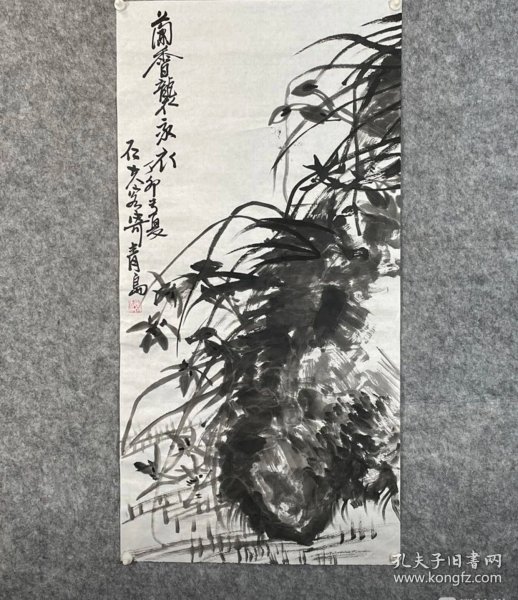 蘭香襲衣
丁卯之夏
石夫客寄青島
孔夫子旧书网
www.kongfz.com